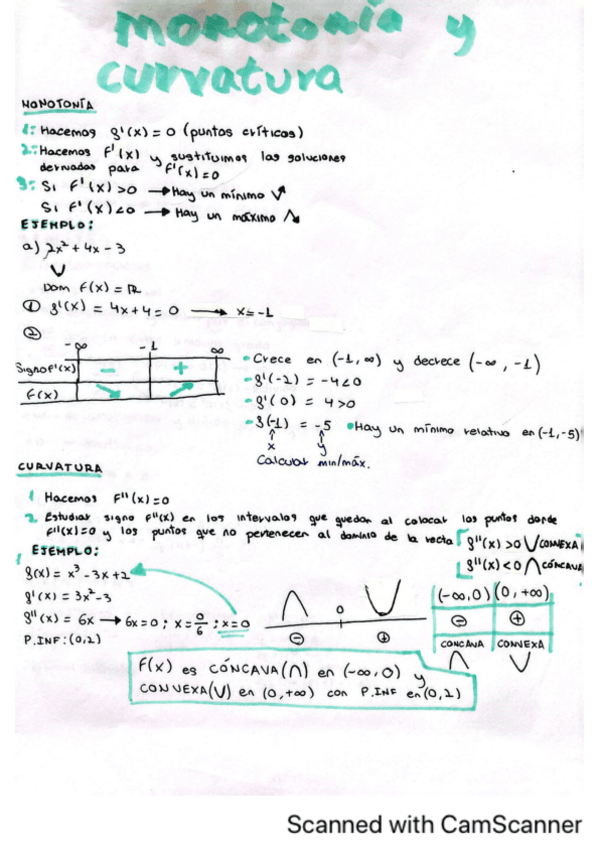 monotonía y
curvatura
MONOTONÍA
1: Hacemos f'(x) = 0 (puntos críticos)
2: Hacemos f'(x) y sustituimos las soluciones
derivadas para f'(x)=0
3: Si f'(x) >0 → Hay un mínimo
Si f'(x) <0 → Hay un máximo
EJEMPLO:
a) 2x² + 4x - 3
Dom f(x) = ℝ
① f'(x) = 4x + 4 = 0 → x = -1
②
-∞ -1 ∞
Signo f'(x) - +
f(x) ↘ ↗
• Crece en (-1, ∞) y decrece (-∞, -1)
• f'(-2) = -4 <0
• f'(0) = 4 >0
• f(-1) = -5 • Hay un mínimo relativo en (-1,-5)
↑ ↑
x y
Calcular min/máx.
CURVATURA
1 Hacemos f''(x)=0
2. Estudiar signo f''(x) en los intervalos que quedan al colocar los puntos donde
f''(x)=0 y los puntos que no pertenecen al dominio de la recta
f''(x) >0 ∪ CONVEXA
f''(x) <0 ∩ CÓNCAVA
EJEMPLO:
f(x) = x³ - 3x + 2
f'(x) = 3x² - 3
f''(x) = 6x → 6x = 0 ; x = 0/6 ; x = 0
P.INF: (0,2)
0
⊖ ⊕
(-∞,0) (0, +∞)
⊖ ⊕
CÓNCAVA CONVEXA
∩ ∪
f(x) es CÓNCAVA (∩) en (-∞, 0) y
CONVEXA (∪) en (0, +∞) con P.INF en (0,2)
Scanned with CamScanner